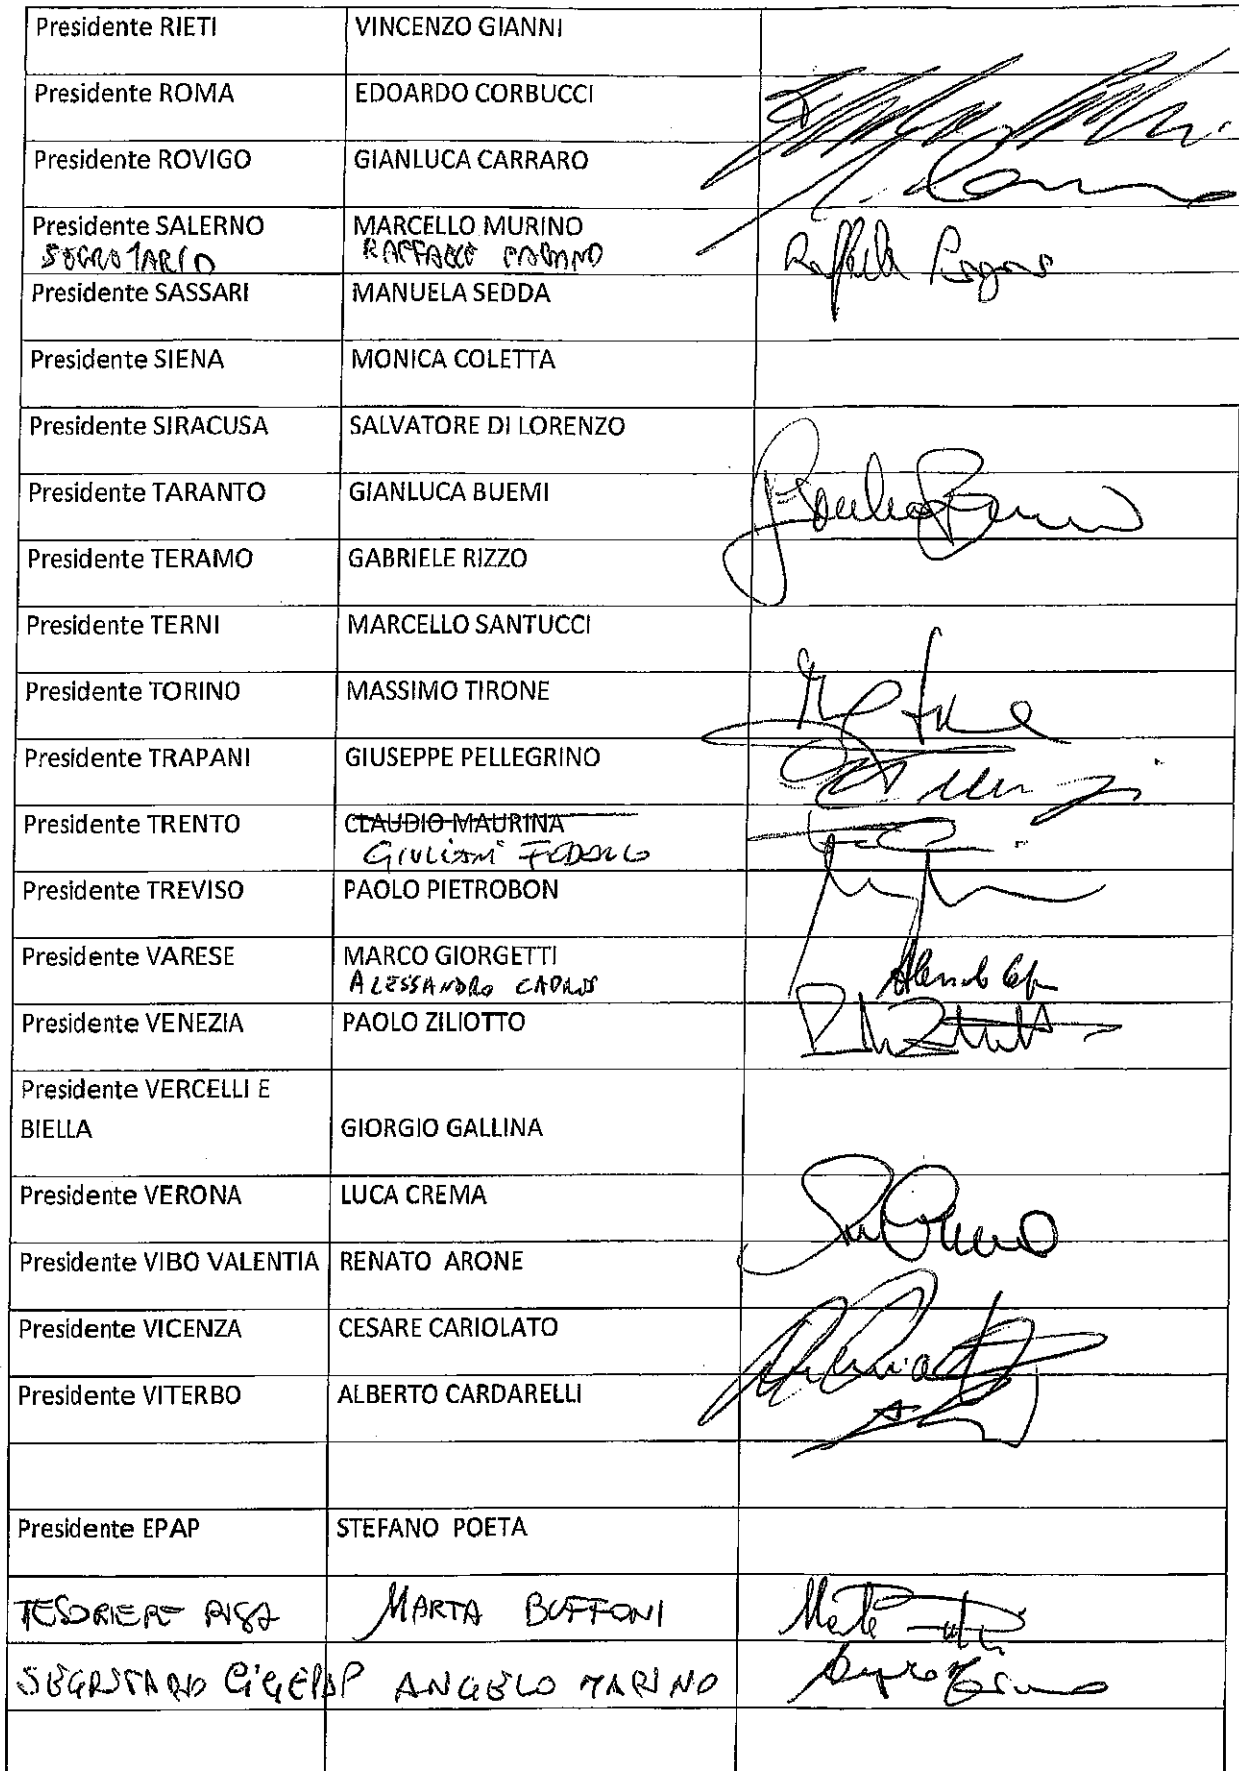 Presidente RIETI VINCENZO GIANNI
Presidente ROMA EDOARDO CORBUCCI
Presidente ROVIGO GIANLUCA CARRARO
Presidente SALERNO MARCELLO MURINO
SEGRETARIO RAFFAELE PAGANO
Presidente SASSARI MANUELA SEDDA
Presidente SIENA MONICA COLETTA
Presidente SIRACUSA SALVATORE DI LORENZO
Presidente TARANTO GIANLUCA BUEMI
Presidente TERAMO GABRIELE RIZZO
Presidente TERNI MARCELLO SANTUCCI
Presidente TORINO MASSIMO TIRONE
Presidente TRAPANI GIUSEPPE PELLEGRINO
Presidente TRENTO CLAUDIO MAURINA
GIULIANI
Presidente TREVISO PAOLO PIETROBON
Presidente VARESE MARCO GIORGETTI
ALESSANDRO
Presidente VENEZIA PAOLO ZILIOTTO
Presidente VERCELLI E
BIELLA GIORGIO GALLINA
Presidente VERONA LUCA CREMA
Presidente VIBO VALENTIA RENATO ARONE
Presidente VICENZA CESARE CARIOLATO
Presidente VITERBO ALBERTO CARDARELLI
Presidente EPAP STEFANO POETA
TESORIERE MARTA BUFFONI
SEGRETARIO ANGELO MARINO